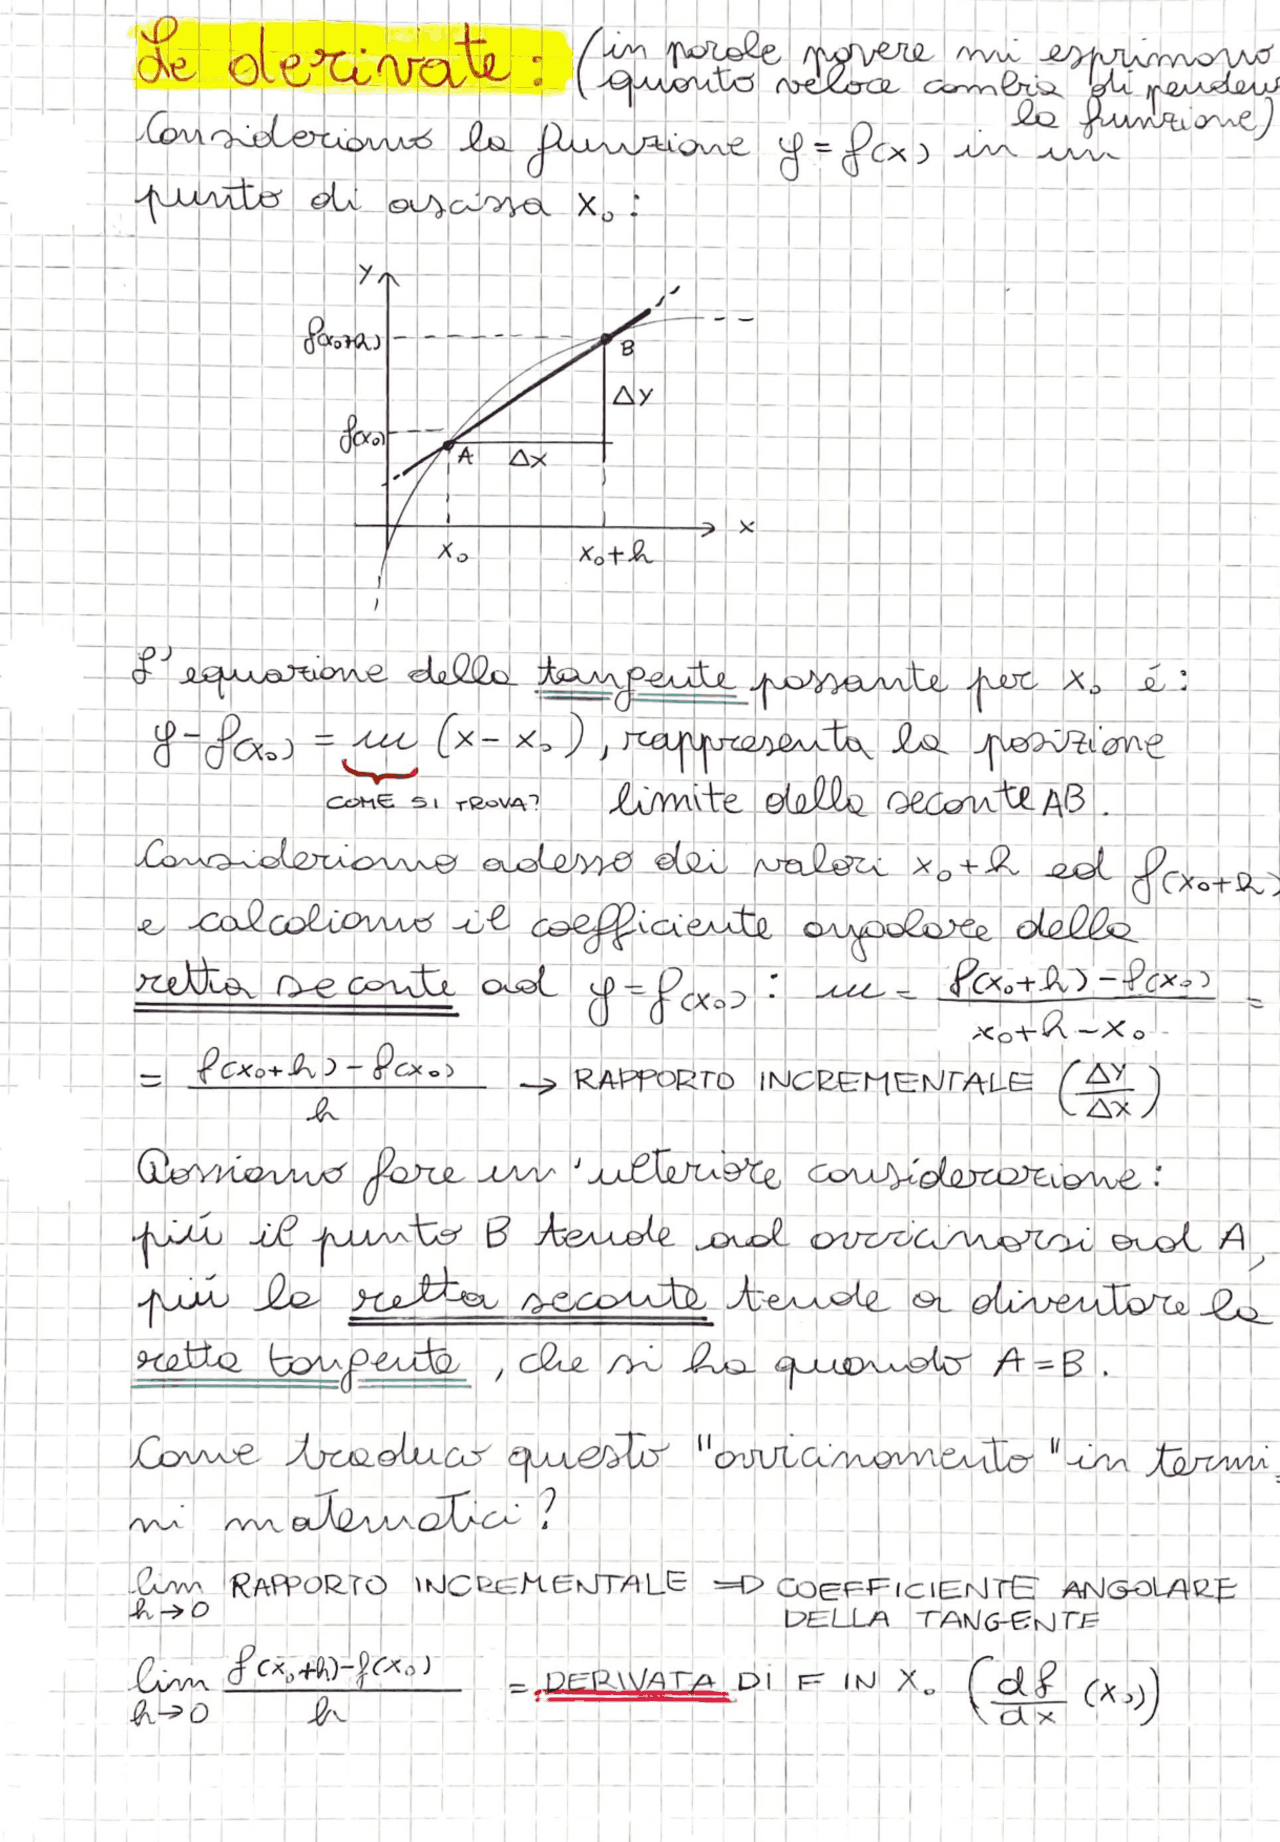 Le derivate: (in parole povere mi esprimono
quanto veloce cambia di penden
la funzione)
Consideriamo la funzione y = f(x) in un
punto di ascissa x₀:
y
f(x₀+h)
B
Δy
f(x₀)
A
Δx
x
x₀
x₀+h
L'equazione della tangente passante per x₀ é:
y-f(x₀) = m (x-x₀), rappresenta la posizione
COME SI TROVA? limite della secante AB.
Consideriamo adesso dei valori x₀+h ed f(x₀+h)
e calcoliamo il coefficiente angolare della
retta secante ad y=f(x₀): m = f(x₀+h)-f(x₀) / x₀+h-x₀ =
= f(x₀+h)-f(x₀) / h → RAPPORTO INCREMENTALE (Δy/Δx)
Possiamo fare un'ulteriore considerazione:
piú il punto B tende ad avvicinarsi ad A,
piú la retta secante tende a diventare la
retta tangente, che si ha quando A=B.
Come traduco questo "avvicinamento" in termi
ni matematici?
lim h→0 RAPPORTO INCREMENTALE ⇒ COEFFICIENTE ANGOLARE
DELLA TANGENTE
lim h→0 f(x₀+h)-f(x₀) / h = DERIVATA DI F IN X₀ (df/dx (x₀))